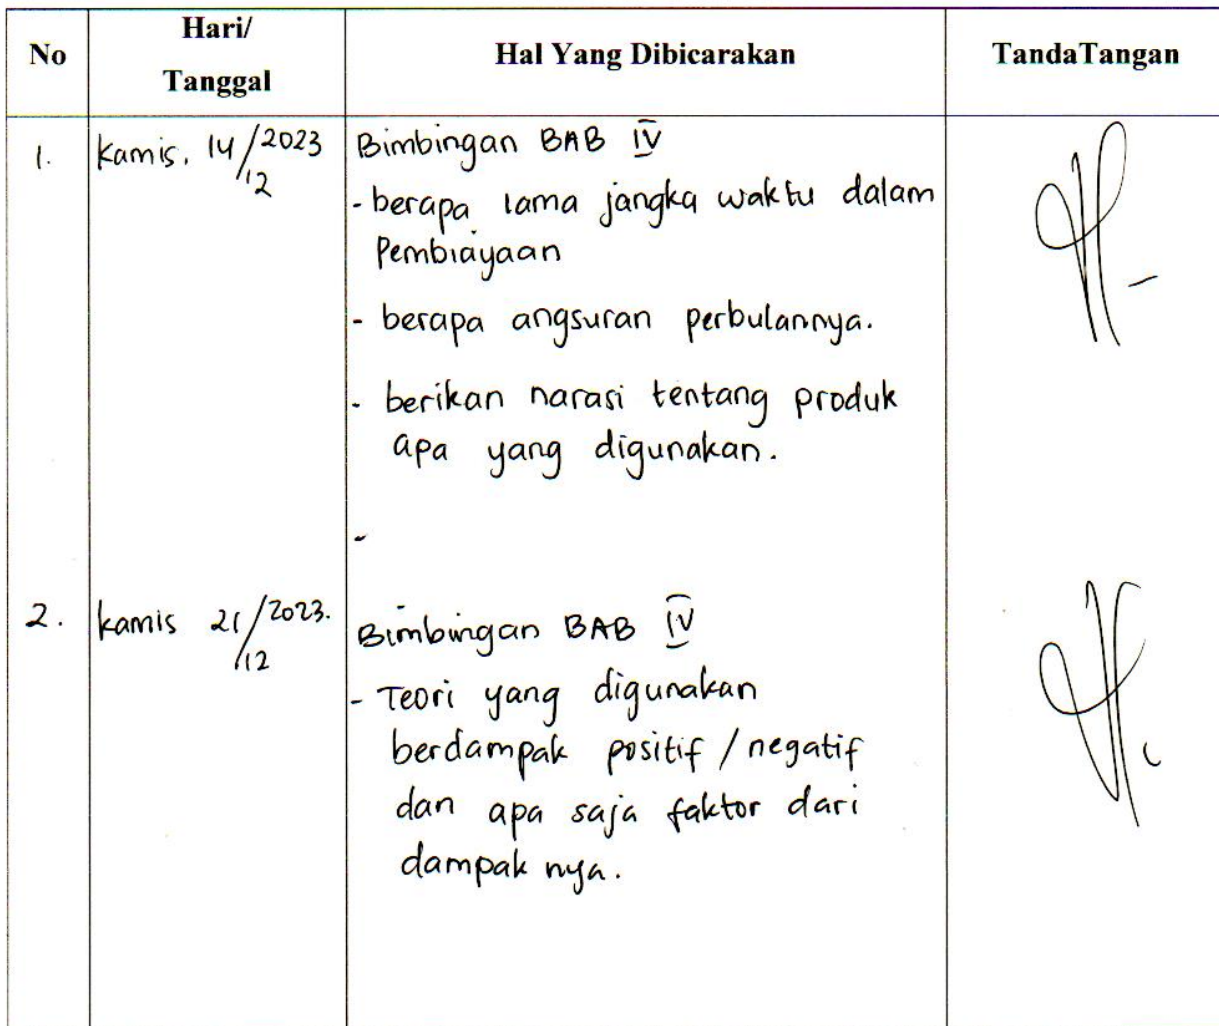 No Hari/ Tanggal Hal Yang Dibicarakan TandaTangan
1. Kamis, 14/12 2023 Bimbingan BAB IV
- berapa lama jangka waktu dalam
Pembiayaan
- berapa angsuran perbulannya.
- berikan narasi tentang produk
apa yang digunakan.
-
2. kamis 21/12 2023. Bimbingan BAB IV
- Teori yang digunakan
berdampak positif / negatif
dan apa saja faktor dari
dampak nya.